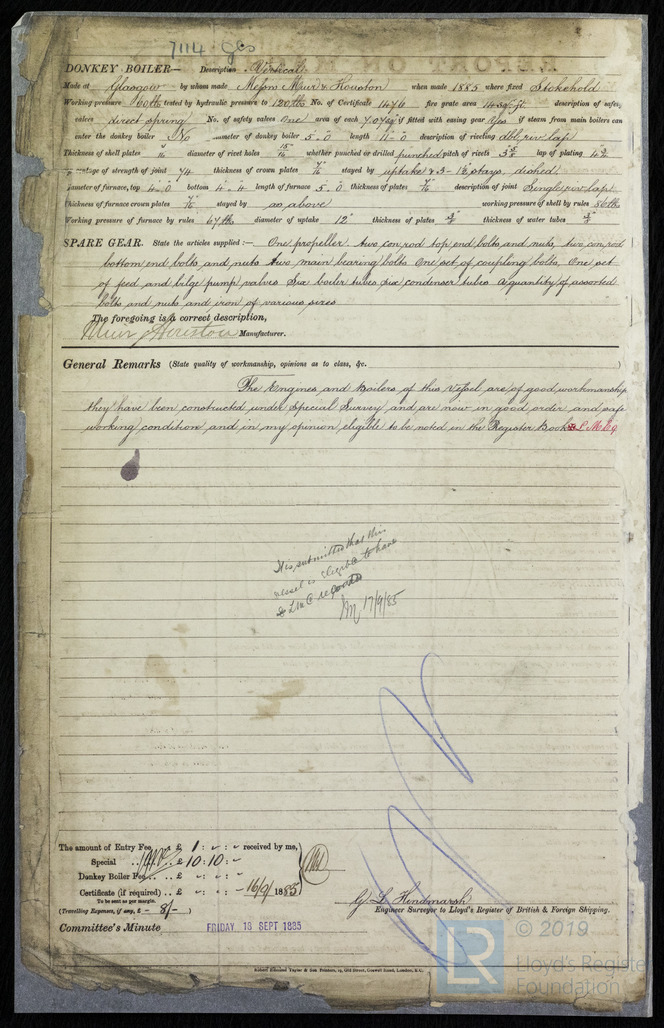 7114 Gls
DONKEY BOILER— Description Vertical
Made at Glasgow by whom made Messrs Muir & Houston when made 1885 where fixed Stokehold
Working pressure 60 lbs tested by hydraulic pressure to 120 lbs No. of Certificate 1476 fire grate area 14 sq ft description of safety
valves direct spring No. of safety valves One area of each 7.07 sq" if fitted with easing gear Yes if steam from main boilers can
enter the donkey boiler No diameter of donkey boiler 5-0 length 11-0 description of riveting dbl riv lap
Thickness of shell plates diameter of rivet holes 15/16 whether punched or drilled punched pitch of rivets lap of plating 4½
percentage of strength of joint 74 thickness of crown plates 7/16 stayed by uptake & 5- 1½ stays, dished.
Diameter of furnace, top 4-0 bottom 4-4 length of furnace 5-0 thickness of plates 7/16 description of joint Single riv lap
Thickness of furnace crown plates 7/16 stayed by as above working pressure of shell by rules
Working pressure of furnace by rules 67 lbs diameter of uptake 12" thickness of plates thickness of water tubes
SPARE GEAR. State the articles supplied:— One propeller, two con rod top end bolts and nuts, two con rod
bottom end bolts and nuts two main bearing bolts One set of coupling bolts, One set
of feed and bilge pump valves Six boiler tubes six condenser tubes A quantity of assorted
bolts and nuts and iron of various sizes
The foregoing is a correct description,
Muir & Houston Manufacturer.
General Remarks (State quality of workmanship, opinions as to class, &c. )
The Engines and Boilers of this Vessel are of good workmanship
they have been constructed under Special Survey and are now in good order and safe
working condition and in my opinion eligible to be noted in the Register Book ✠ L.M.C.
It is submitted that this
vessel is eligible to have
✠ LMC recorded
17/9/85
The amount of Entry Fee .. £ 1 : - : - received by me,
Special .. .. £ 10:10: -
Donkey Boiler Fee .. .. £ - : - : -
Certificate (if required) .. £ - : - : - 16/9/1885
To be sent as per margin.
(Travelling Expenses, if any, £ — 8/— )
G. L. Hindmarsh
Engineer Surveyor to Lloyd's Register of British & Foreign Shipping.
Committee's Minute FRIDAY 18 SEPT 1885
© 2019
LR
Lloyd's Register
Foundation